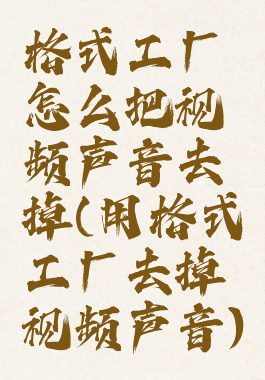 格式工厂
怎么把视
频声音去
掉(用格式
工厂去掉
视频声音)